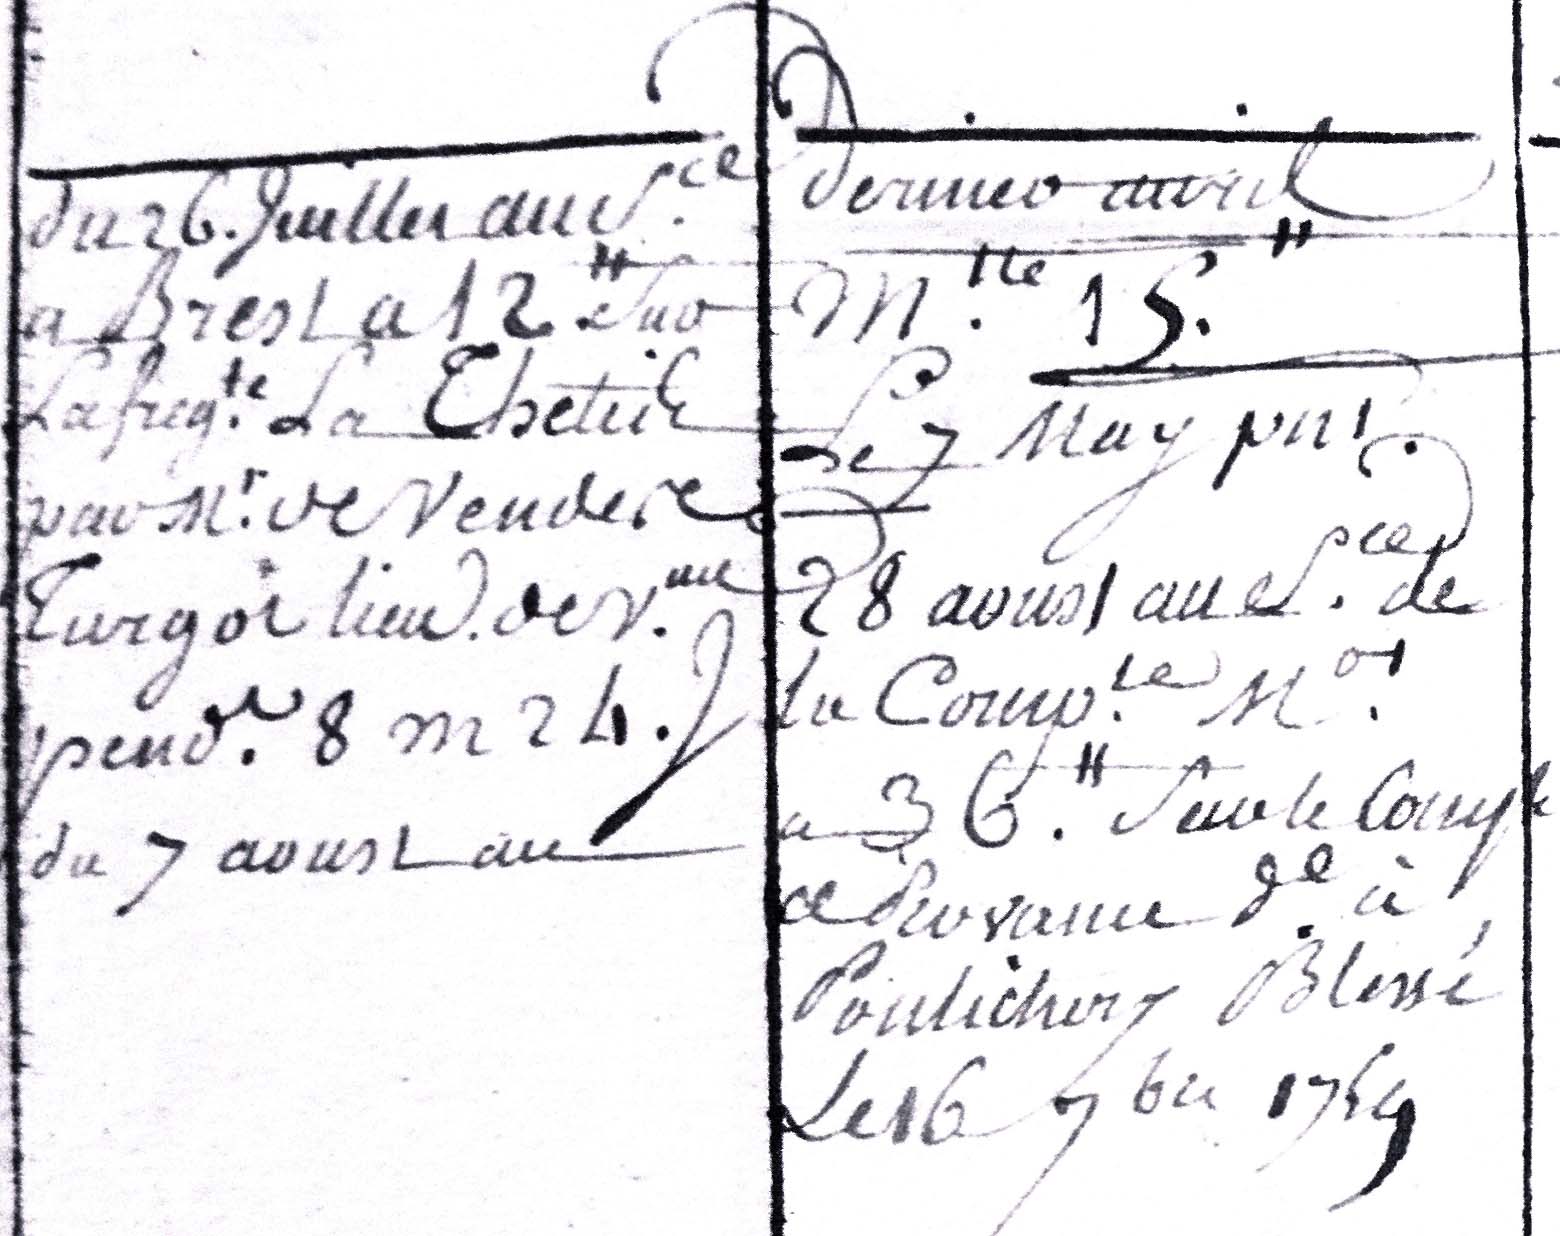 du 26. Juillet au S.ce
a Brest a 12 ₶ Sur
La freg.te La Thetis
par M.r de Vendes
Turgot lieu. de v.au
pend.t 8 m 24. J
du 7 aoust au
dernier avril
M.lle 15. ₶
Le 7 May pnt.
28 aoust au S.ce de
la Comp.ie M.ot
a 36. ₶ Sur le Comte
de Provance d.e à
Pontichery Blessé
Le 16 7bre 1759